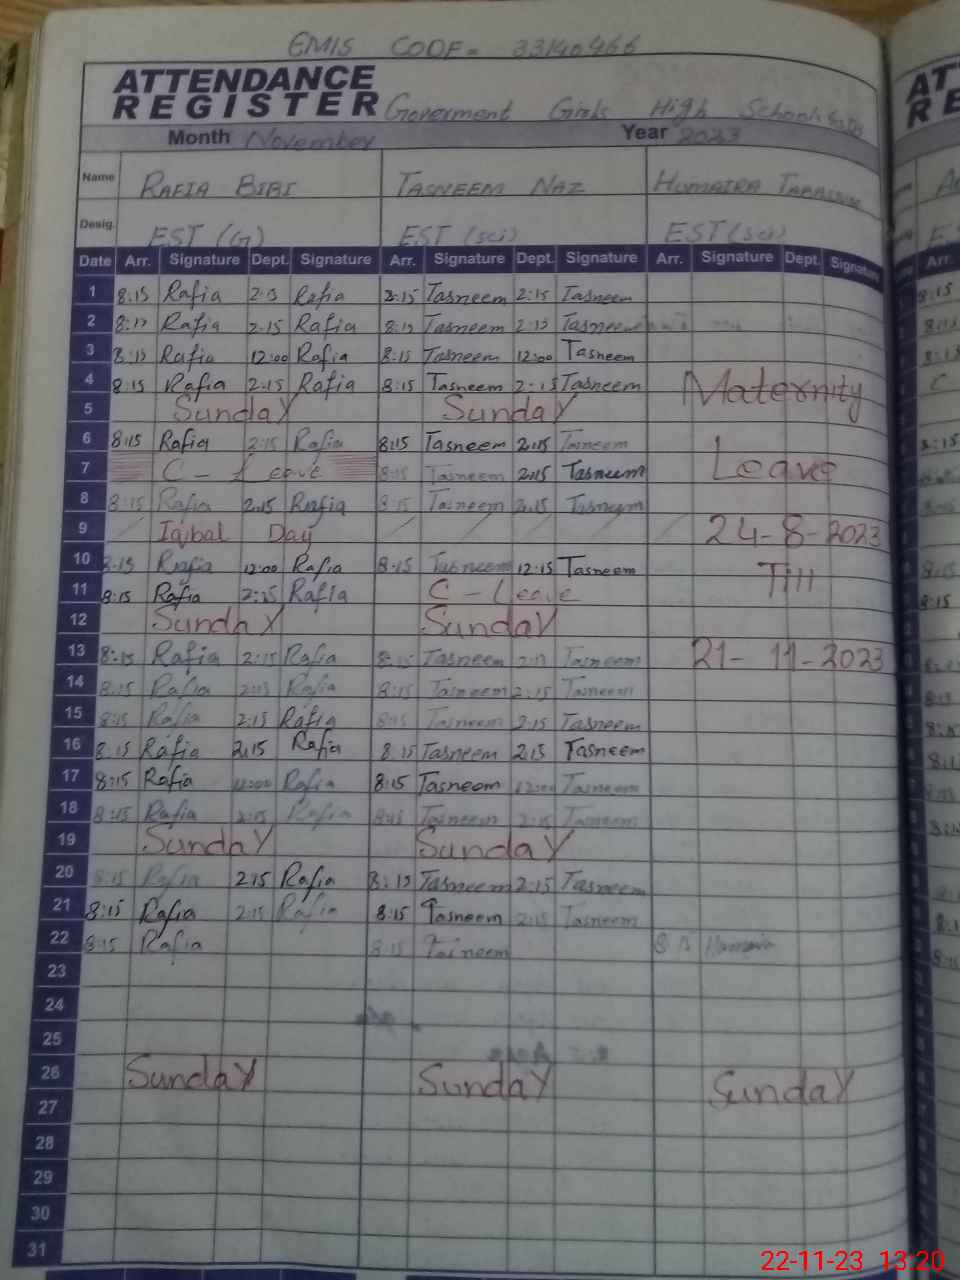 EMIS CODE= 33140466
ATTENDANCE
REGISTER Goverment Girls High School
Month November Year 2023
Name RAFIA BIBI TASNEEM NAZ HUMAIRA
Desig. EST (G) EST (sci) EST (sci)
Date Arr. Signature Dept. Signature Arr. Signature Dept. Signature Arr. Signature Dept. Signature Arr.
1 8:15 Rafia Rafia 2:15 Tasneem 2:15 Tasneem 8:15
2 8:15 Rafia 2:15 Rafia 8:15 Tasneem 2:15 Tasneem
3 8:15 Rafia 12:00 Rafia 8:15 Tasneem 12:00 Tasneem
4 8:15 Rafia 2:15 Rafia 8:15 Tasneem 2:15 Tasneem Maternity
5 Sunday Sunday
6 8:15 Rafia 2:15 Rafia 8:15 Tasneem 2:15 Tasneem
7 C - Leave 8:15 Tasneem 2:15 Tasneem Leave
8 8:15 Rafia 2:15 Rafia 8:15 Tasneem 2:15 Tasneem
9 Iqbal Day 24-8-2023
10 8:15 Rafia 12:00 Rafia 8:15 Tasneem 12:15 Tasneem Till
11 8:15 Rafia 2:15 Rafia C - Leave
12 Sunday Sunday
13 8:15 Rafia 2:15 Rafia 8:15 Tasneem Tasneem 21-11-2023
14 8:15 Rafia 2:15 Rafia 8:15 Tasneem 2:15 Tasneem
15 8:15 Rafia 2:15 Rafia 8:15 Tasneem 2:15 Tasneem
16 8:15 Rafia 2:15 Rafia 8:15 Tasneem 2:15 Tasneem
17 8:15 Rafia 12:00 Rafia 8:15 Tasneem 12:00 Tasneem
18 8:15 Rafia 2:15 Rafia 8:15 Tasneem 2:15 Tasneem
19 Sunday Sunday
20 8:15 Rafia 2:15 Rafia 8:15 Tasneem 2:15 Tasneem
21 8:15 Rafia 2:15 Rafia 8:15 Tasneem 2:15 Tasneem
22 8:15 Rafia 8:15 Tasneem 8:15 Humaira
23
24
25
26 Sunday Sunday Sunday
27
28
29
30
31
22-11-23 13:20